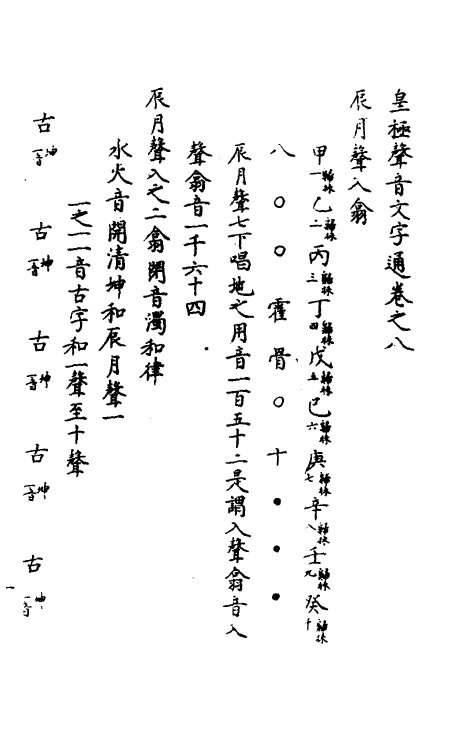 皇極聲音文字通卷之八
辰月聲入翕
甲一 乙二 丙三 丁四 戊五 己六 庚七 辛八 壬九 癸十
八〇〇霍骨〇十●●●
辰月聲七下唱地之用音一百五十二是謂入聲翕音入
聲翕音一千六十四
辰月聲入之二翕閉音濁和律
水火音開清坤和辰月聲一
一之一音古字和一聲至十聲
古坤一音 古坤一音 古坤一音 古坤一音 古坤一音
一